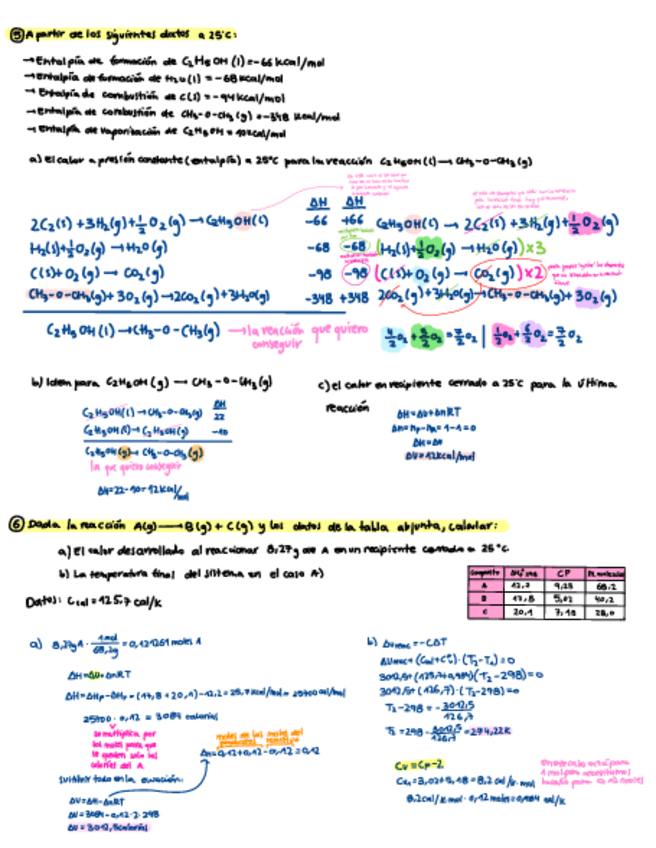 ⑤ A partir de los siguientes datos a 25°C:
→ Entalpía de formación de C₂H₅OH (l) = -66 kcal/mol
→ Entalpía de formación de H₂O (l) = -68 kcal/mol
→ Entalpía de combustión de C(s) = -94 kcal/mol
→ Entalpía de combustión de CH₃-O-CH₃ (g) = -348 kcal/mol
→ Entalpía de vaporización de C₂H₅OH = 10 kcal/mol
a) El calor a presión constante (entalpía) a 25°C para la reacción C₂H₅OH(l) → CH₃-O-CH₃(g)
ΔH ΔH
2C₂(s) + 3H₂(g) + 1/2 O₂(g) → C₂H₅OH(l) -66 +66 C₂H₅OH(l) → 2C₂(s) + 3H₂(g) + 1/2 O₂(g)
H₂(g) + 1/2 O₂(g) → H₂O(g) -68 -68 (H₂(s) + 1/2 O₂(g) → H₂O(g)) x3
C(s) + O₂(g) → CO₂(g) -98 -98 (C(s) + O₂(g) → CO₂(g)) x2
CH₃-O-CH₃(g) + 3O₂(g) → 2CO₂(g) + 3H₂O(g) -348 +348 2CO₂(g) + 3H₂O(g) → CH₃-O-CH₃(g) + 3O₂(g)
C₂H₅OH(l) → CH₃-O-CH₃(g) → la reacción que quiero conseguir
4/2 O₂ + 3/2 O₂ = 7/2 O₂ | 1/2 O₂ + 6/2 O₂ = 7/2 O₂
b) Idem para C₂H₅OH(g) → CH₃-O-CH₃(g)
ΔH
C₂H₅OH(l) → CH₃-O-CH₃(g) 22
C₂H₅OH(l) → C₂H₅OH(g) -10
C₂H₅OH(g) → CH₃-O-CH₃(g)
la que quiero conseguir
ΔH = 22 - 10 = 12 kcal/mol
c) el calor en recipiente cerrado a 25°C para la última
reacción
ΔH = ΔU + ΔnRT
Δn = np - nR = 1 - 1 = 0
ΔH = ΔU
ΔU = 12 kcal/mol
⑥ Dada la reacción A(g) → B(g) + C(g) y los datos de la tabla adjunta, calcular:
a) El calor desarrollado al reaccionar 8,27g de A en un recipiente cerrado a 25°C
b) La temperatura final del sistema en el caso A)
Datos: Ccal = 125,7 cal/k
CP
A 12,2 9,25 68,2
B 17,8 5,02 40,2
C 20,1 7,18 28,0
a) 8,27g A · 1mol/68,2g = 0,121261 moles A
ΔH = ΔU + ΔnRT
ΔH = ΔHP - ΔHr = (17,8 + 20,1) - 12,2 = 25,7 kcal/mol = 25700 cal/mol
25700 · 0,12 = 3084 calorías
se multiplica por
los moles para que
se queden solo las
calorías del A
moles de los moles del
Δn = 0,12 + 0,12 - 0,12 = 0,12
sustituir todo en la ecuación:
ΔU = ΔH - ΔnRT
ΔU = 3084 - 0,12 · 2 · 298
ΔU = 3012,5 calorías
b) ΔUreac = -CΔT
ΔUreac + (Ccal + C) · (T₂ - T₁) = 0
3012,5 + (125,7 + 0,984)(T₂ - 298) = 0
3012,5 + (126,7) · (T₂ - 298) = 0
T₂ - 298 = - 3012,5/126,7
T₂ = 298 - 3012,5/126,7 = 274,22K
Cv = Cp - 2
Cv = 3,02 + 5,18 = 8,2 cal/k·mol
8,2 cal/k·mol · 0,12 moles = 0,984 cal/k